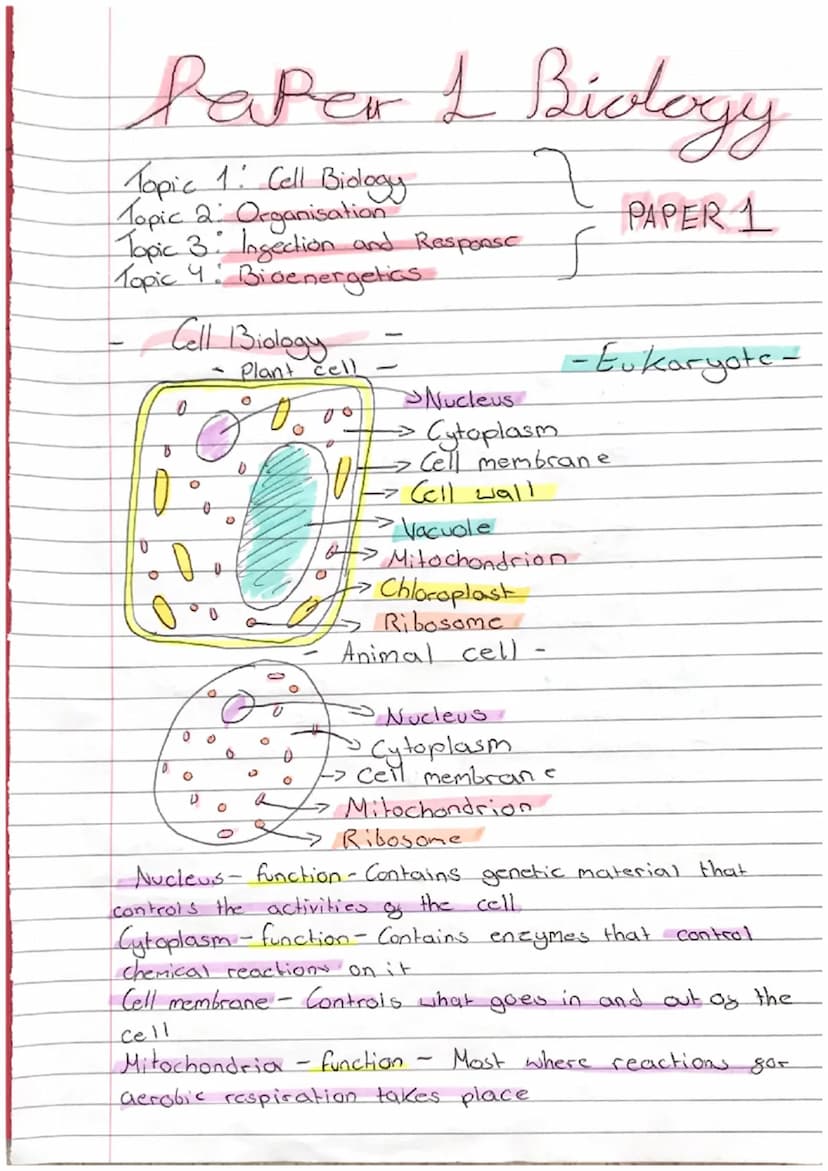 Paper 1 Biology
Topic 1: Cell Biology
Topic 2: Organisation
Topic 3: Ingection and Response
Topic 4: Bioenergetics
PAPER 1
- Cell Biology -
- Plant cell -
- Eukaryote -
Nucleus
Cytoplasm
Cell membrane
Cell wall
Vacuole
Mitochondrion
Chloroplast
Ribosome
- Animal cell -
Nucleus
Cytoplasm
Cell membrane
Mitochondrion
Ribosome
Nucleus - function - Contains genetic material that
controls the activities of the cell
Cytoplasm - function - Contains enzymes that control
chemical reactions on it
Cell membrane - Controls what goes in and out of the
cell
Mitochondria - function - Most where reactions for
aerobic respiration takes place